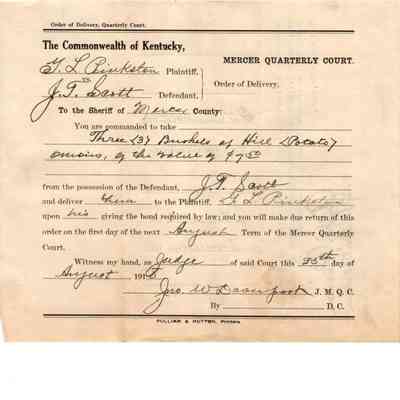 Order of Delivery, Quarterly Court.
The Commonwealth of Kentucky,
MERCER QUARTERLY COURT.
L Pinkston Plaintiff,
vs
Order of Delivery.
J. T. Scott Defendant,
To the Sheriff of Mercer County:
You are commanded to take
Three (3) Bushels of Hill (Potato)
onions, of the value of $7.50
from the possession of the Defendant, J. T. Scott
and deliver them to the Plaintiff, L Pinkston
upon his giving the bond required by law; and you will make due return of this
order on the first day of the next August Term of the Mercer Quarterly
Court.
Witness my hand, as Judge of said Court this 25th day of
August 191
Jno. W Davenport J. M. Q. C.
By D. C.
PULLIAM & NUTTER, Printers